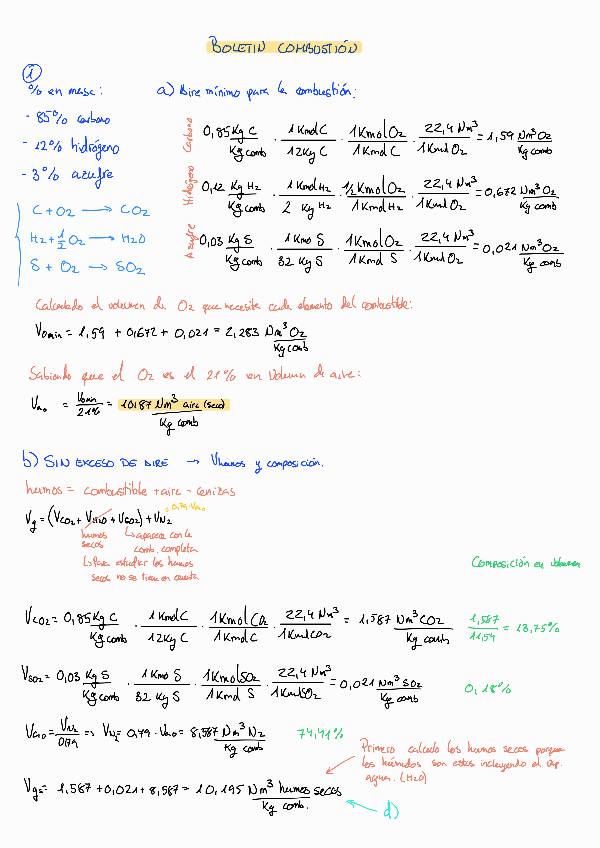 BOLETIN COMBUSTIÓN
1
% en masa:
- 85% carbono
- 12% hidrógeno
- 3% azufre
C + O2 → CO2
H2 + 1/2 O2 → H2O
S + O2 → SO2
a) Aire mínimo para la combustión:
Carbono
0,85 Kg C / Kg comb · 1 Kmol C / 12 Kg C · 1 Kmol O2 / 1 Kmol C · 22,4 Nm³ / 1 Kmol O2 = 1,59 Nm³ O2 / Kg comb
Hidrógeno
0,12 Kg H2 / Kg comb · 1 Kmol H2 / 2 Kg H2 · 1/2 Kmol O2 / 1 Kmol H2 · 22,4 Nm³ / 1 Kmol O2 = 0,672 Nm³ O2 / Kg comb
Azufre
0,03 Kg S / Kg comb · 1 Kmol S / 32 Kg S · 1 Kmol O2 / 1 Kmol S · 22,4 Nm³ / 1 Kmol O2 = 0,021 Nm³ O2 / Kg comb
Calculado el volumen de O2 que necesita cada elemento del combustible:
Vomin = 1,59 + 0,672 + 0,021 = 2,283 Nm³ O2 / Kg comb
Sabiendo que el O2 es el 21% en volumen de aire:
Vao = Vomin / 21% = 10,87 Nm³ aire (seco) / Kg comb
b) SIN EXCESO DE AIRE → Vhumos y composición.
humos = combustible + aire - cenizas
Vg = (VCO2 + VH2O + VSO2) + VN2 = 0,79 · Vao
humos secos
↳ aparece con la comb. completa
↳ Para estudiar los humos secos no se tiene en cuenta
Composición en volumen
VCO2 = 0,85 Kg C / Kg comb · 1 Kmol C / 12 Kg C · 1 Kmol CO2 / 1 Kmol C · 22,4 Nm³ / 1 Kmol CO2 = 1,587 Nm³ CO2 / Kg comb
1,587 / 11,54 = 13,75%
VSO2 = 0,03 Kg S / Kg comb · 1 Kmol S / 32 Kg S · 1 Kmol SO2 / 1 Kmol S · 22,4 Nm³ / 1 Kmol SO2 = 0,021 Nm³ SO2 / Kg comb
0,18%
Vao = VN2 / 0,79 => VN2 = 0,79 · Vao = 8,587 Nm³ N2 / Kg comb
74,41%
Primero calculo los humos secos porque
los húmedos son estos incluyendo el vap.
agua. (H2O)
Vgs = 1,587 + 0,021 + 8,587 = 10,195 Nm³ humos secos / Kg comb.
d)